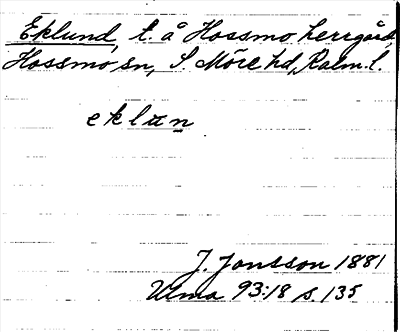 Eklund, t. å Hossmo herrgård,
Hossmo sn, S. Möre hd, Kalm. l.
eklun
J. Jonsson 1881
Ulma 93:18 s. 135